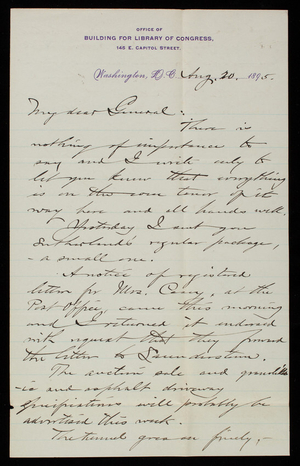 OFFICE OF
BUILDING FOR LIBRARY OF CONGRESS,
145 E. CAPITOL STREET.
Washington, D.C. Aug. 20. 1895.
My dear General:
There is
nothing of importance to
say and I write only to
let you know that everything
is on the even tenor of its
way here and all hands well.
Yesterday I sent you
Sutherland's regular package,
- a small one.
A notice of registered
letter for Mrs. Casey, at the
Post Office, came this morning
and I returned it endorsed
with request that they forward
the letter to Saunderstown.
The auction sale and granolith-
ic and asphalt driveway
specifications will probably be
advertised this week.
The tunnel goes on finely,-